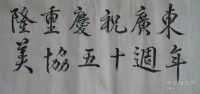 隆重慶祝廣東
美協五十週年